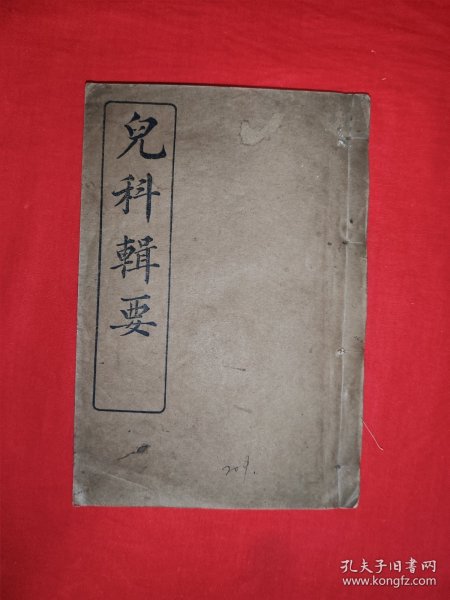 兒科輯要
209.
孔夫子旧书网
www.kongfz.com